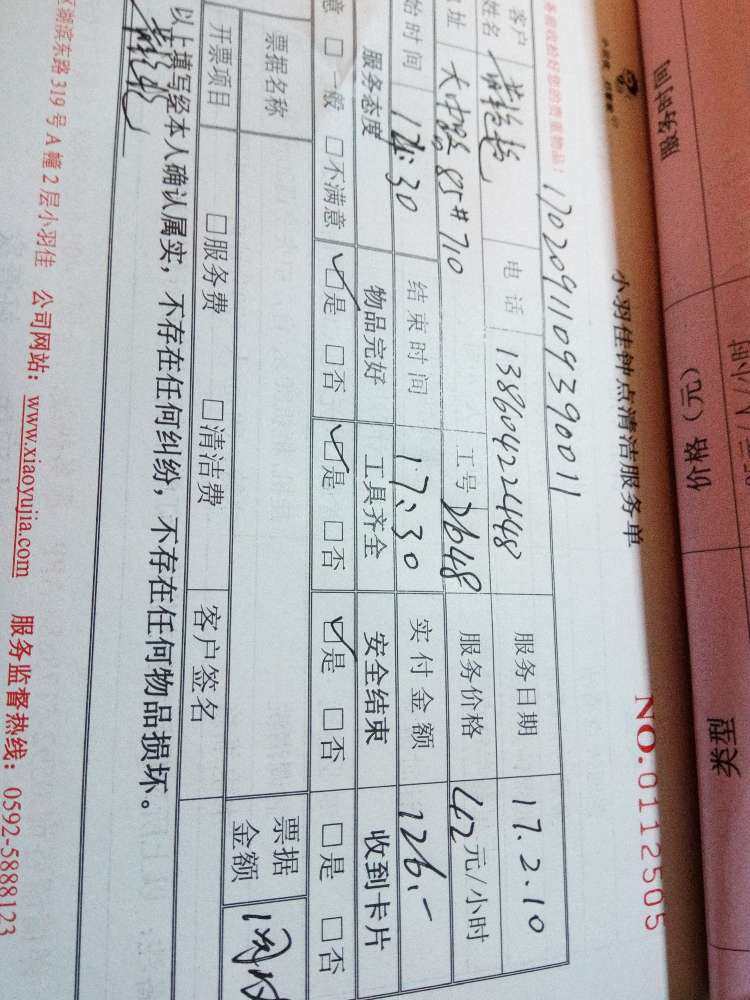 小羽佳钟点清洁服务单
NO.0112505
170209110939001 1
客户姓名 电话 13860422448 服务日期 17.2.10
地址 85#710 工号 2648 服务价格 42元/小时
始时间 14:30 结束时间 17:30 实付金额 126.-
服务态度 物品完好 工具齐全 安全结束 收到卡片
意 □一般 □不满意 ☑是 □否 ☑是 □否 ☑是 □否 □是 □否
票据名称 票据金额
开票项目 □服务费 □清洁费 客户签名
以上填写经本人确认属实，不存在任何纠纷，不存在任何物品损坏。
区湖滨东路319号A幢2层小羽佳 公司网站：www.xiaoyujia.com 服务监督热线：0592-5888123
服务时间 价格（元） 类型
/小时